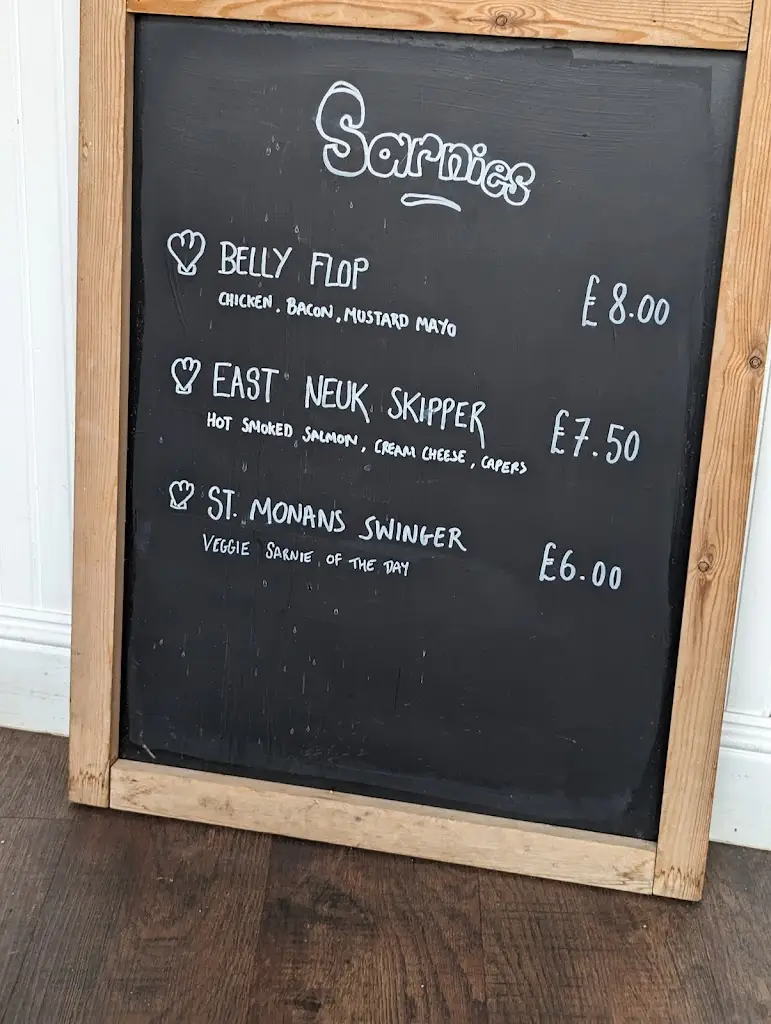 Sarnies
BELLY FLOP
£8.00
CHICKEN. BACON, MUSTARD MAYO
EAST NEUK SKIPPER
£7.50
HOT SMOKED SALMON, CREAM CHEESE, CAPERS
ST. MONANS SWINGER
£6.00
VEGGIE SARNIE OF THE DAY